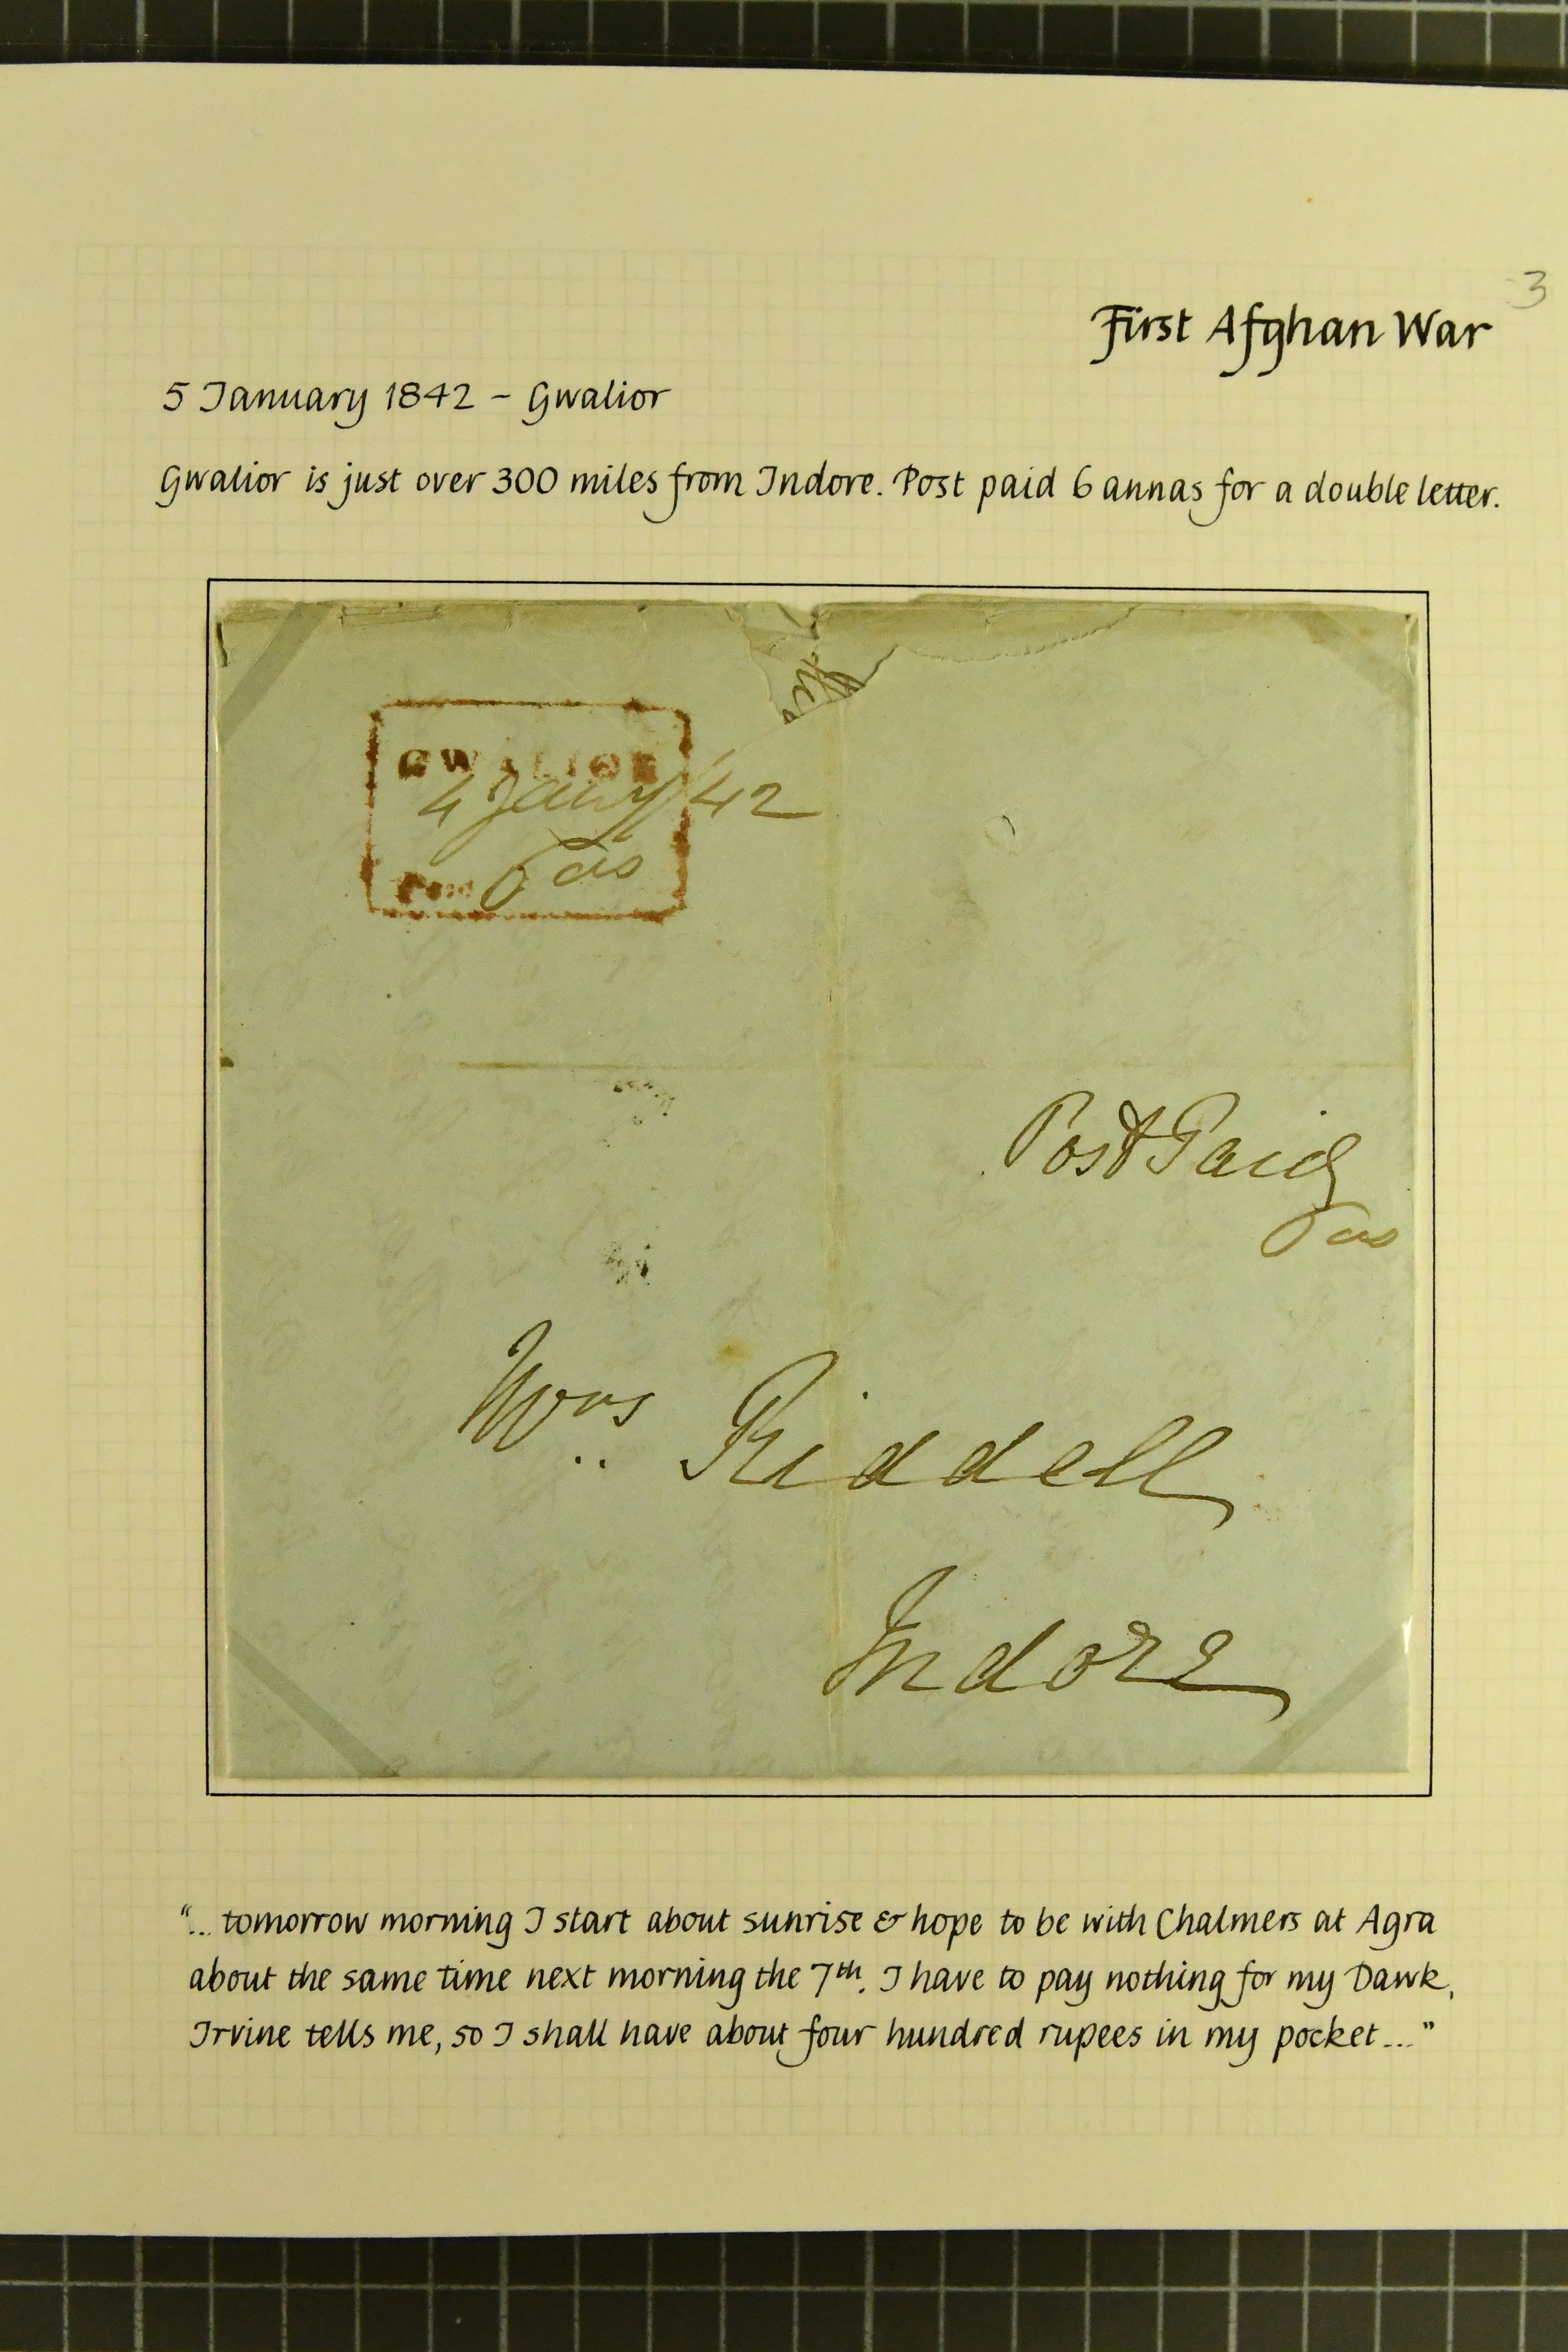 3
First Afghan War
5 January 1842 – Gwalior
Gwalior is just over 300 miles from Indore. Post paid 6 annas for a double letter.
GWALIOR
4 Jany/42
6 as
Post Paid
6 as
Mrs Riddell
Indore
"... tomorrow morning I start about sunrise & hope to be with Chalmers at Agra
about the same time next morning the 7th. I have to pay nothing for my Dawk,
Irvine tells me, so I shall have about four hundred rupees in my pocket ..."